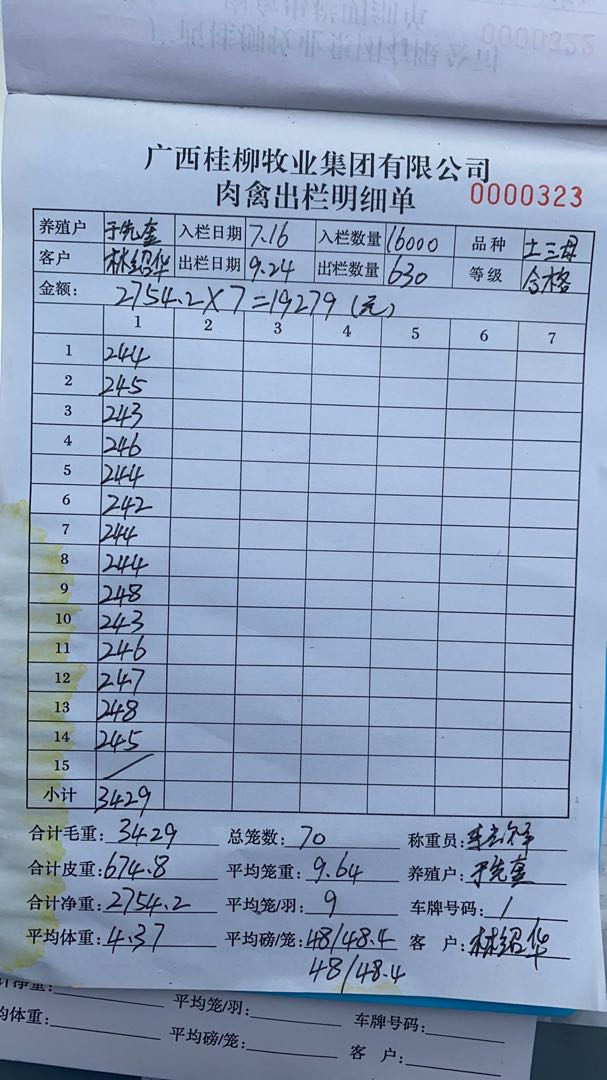 0000322
广西桂柳牧业集团有限公司
肉禽出栏明细单 0000323
养殖户 于先奎 入栏日期 7.16 入栏数量 16000 品种 土三母
客户 林绍华 出栏日期 9.24 出栏数量 630 等级 合格
金额: 2754.2×7=19279(元)
1 2 3 4 5 6 7
1 244
2 245
3 243
4 246
5 244
6 242
7 244
8 244
9 248
10 243
11 246
12 247
13 248
14 245
15 /
小计 3429
合计毛重: 3429 总笼数: 70 称重员:
合计皮重: 674.8 平均笼重: 9.64 养殖户: 于先奎
合计净重: 2754.2 平均笼/羽: 9 车牌号码: /
平均体重: 4.37 平均磅/笼: 48/48.4 客户: 林绍华
48/48.4
计净重: 平均笼/羽: 车牌号码:
均体重: 平均磅/笼: 客户: